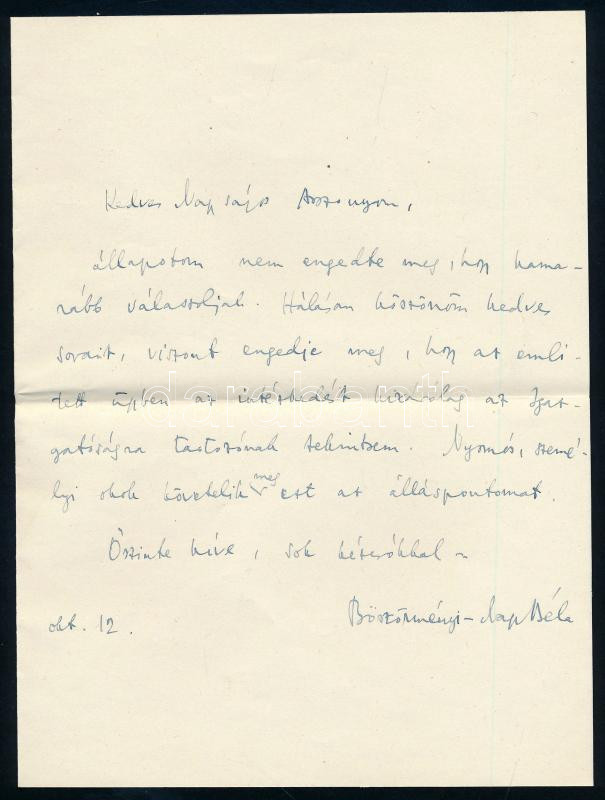 Kedves Nagyságos Asszonyom,
állapotom nem engedte meg, hogy hama-
rább válaszoljak. Hálásan köszönöm kedves
sorait, viszont engedje meg, hogy az emlí-
tett ügyben az intézkedést kizárólag az Igaz-
gatóságra tartozónak tekintsem. Nyomós, szemé-
lyi okok követelik meg ezt az álláspontomat.
Őszinte híve, sok kézcsókkal –
okt. 12.
Böszörményi-Nagy Béla
darabanth